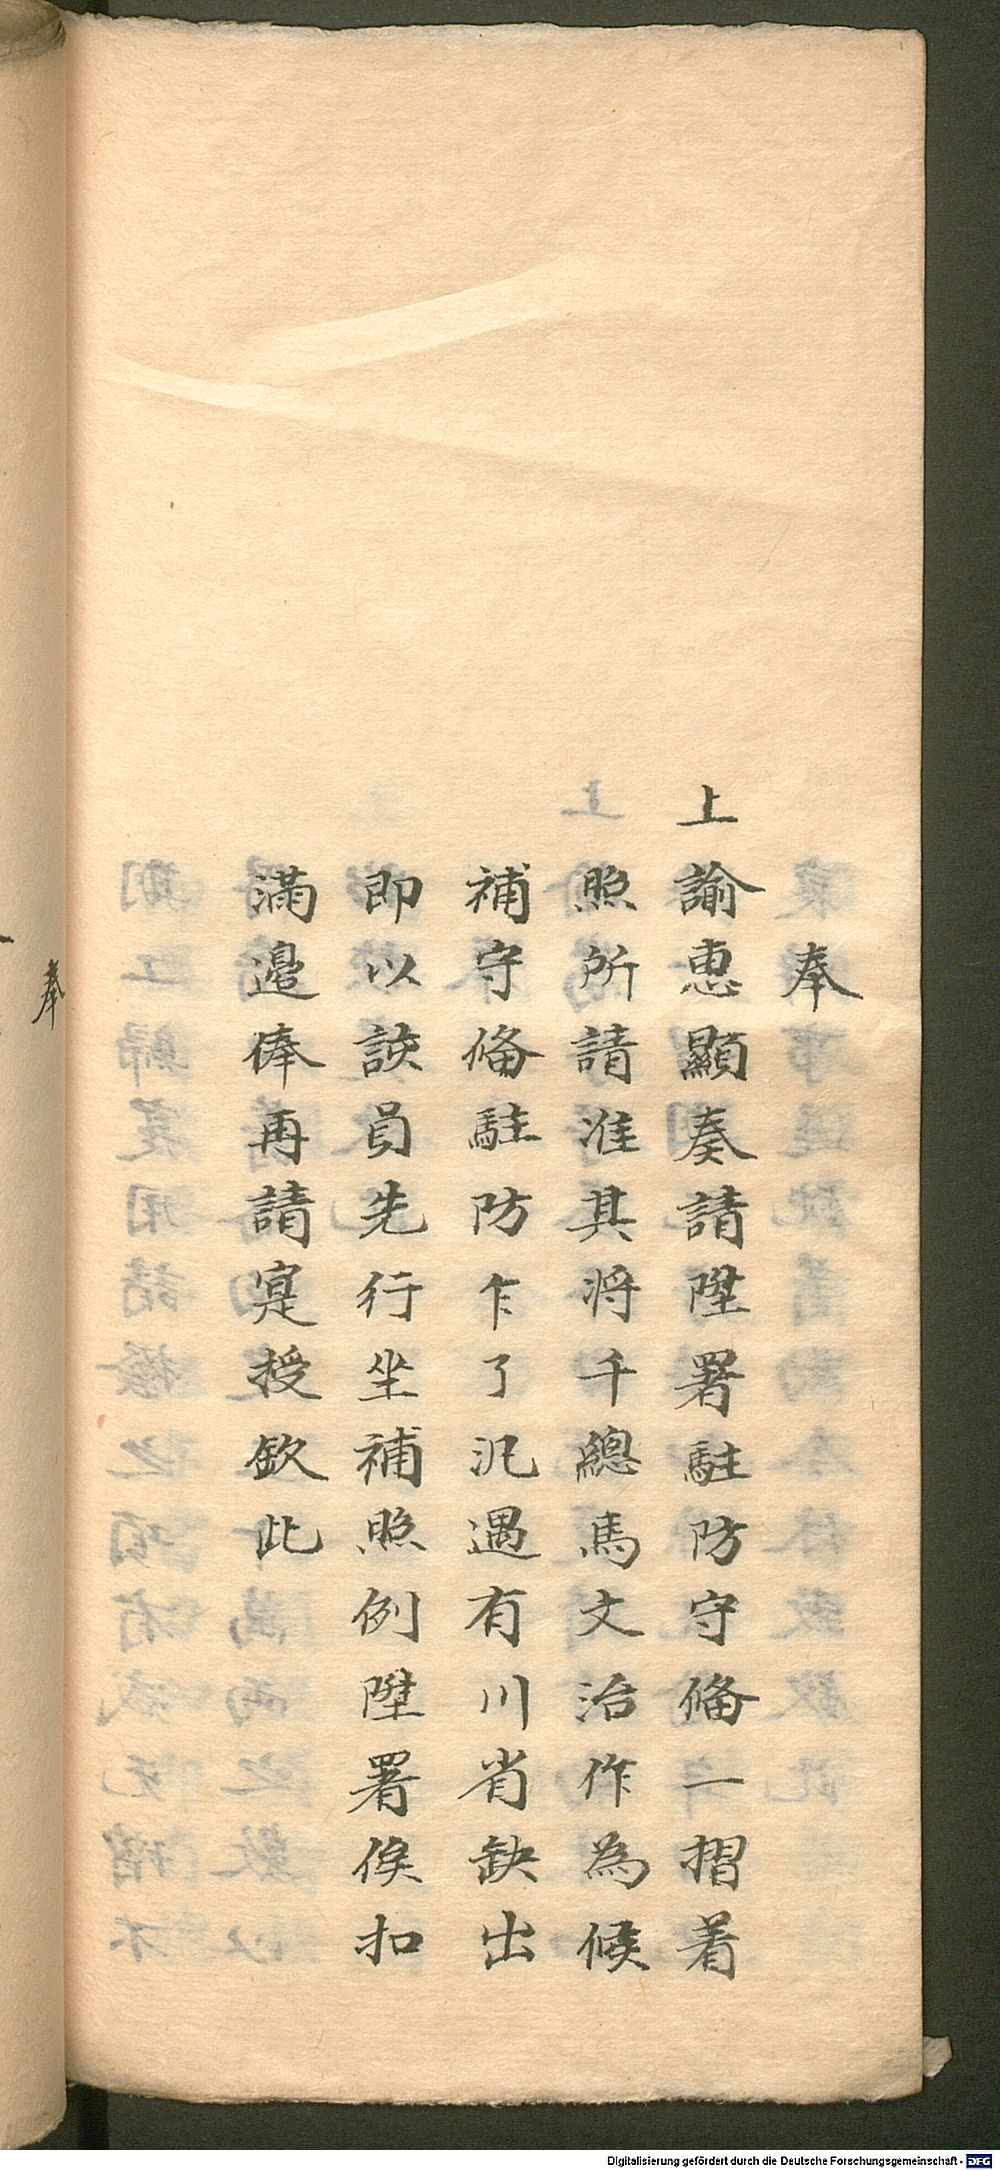 奉
上諭惠顯奏請陞署駐防守俻一摺着
照所請准其将千總馬文治作為候
補守俻駐防乍了汛遇有川省缺出
即以該員先行坐補照例陞署俟扣
滿邉俸再請寔授欽此
奉
Digitalisierung gefördert durch die Deutsche Forschungsgemeinschaft - DFG